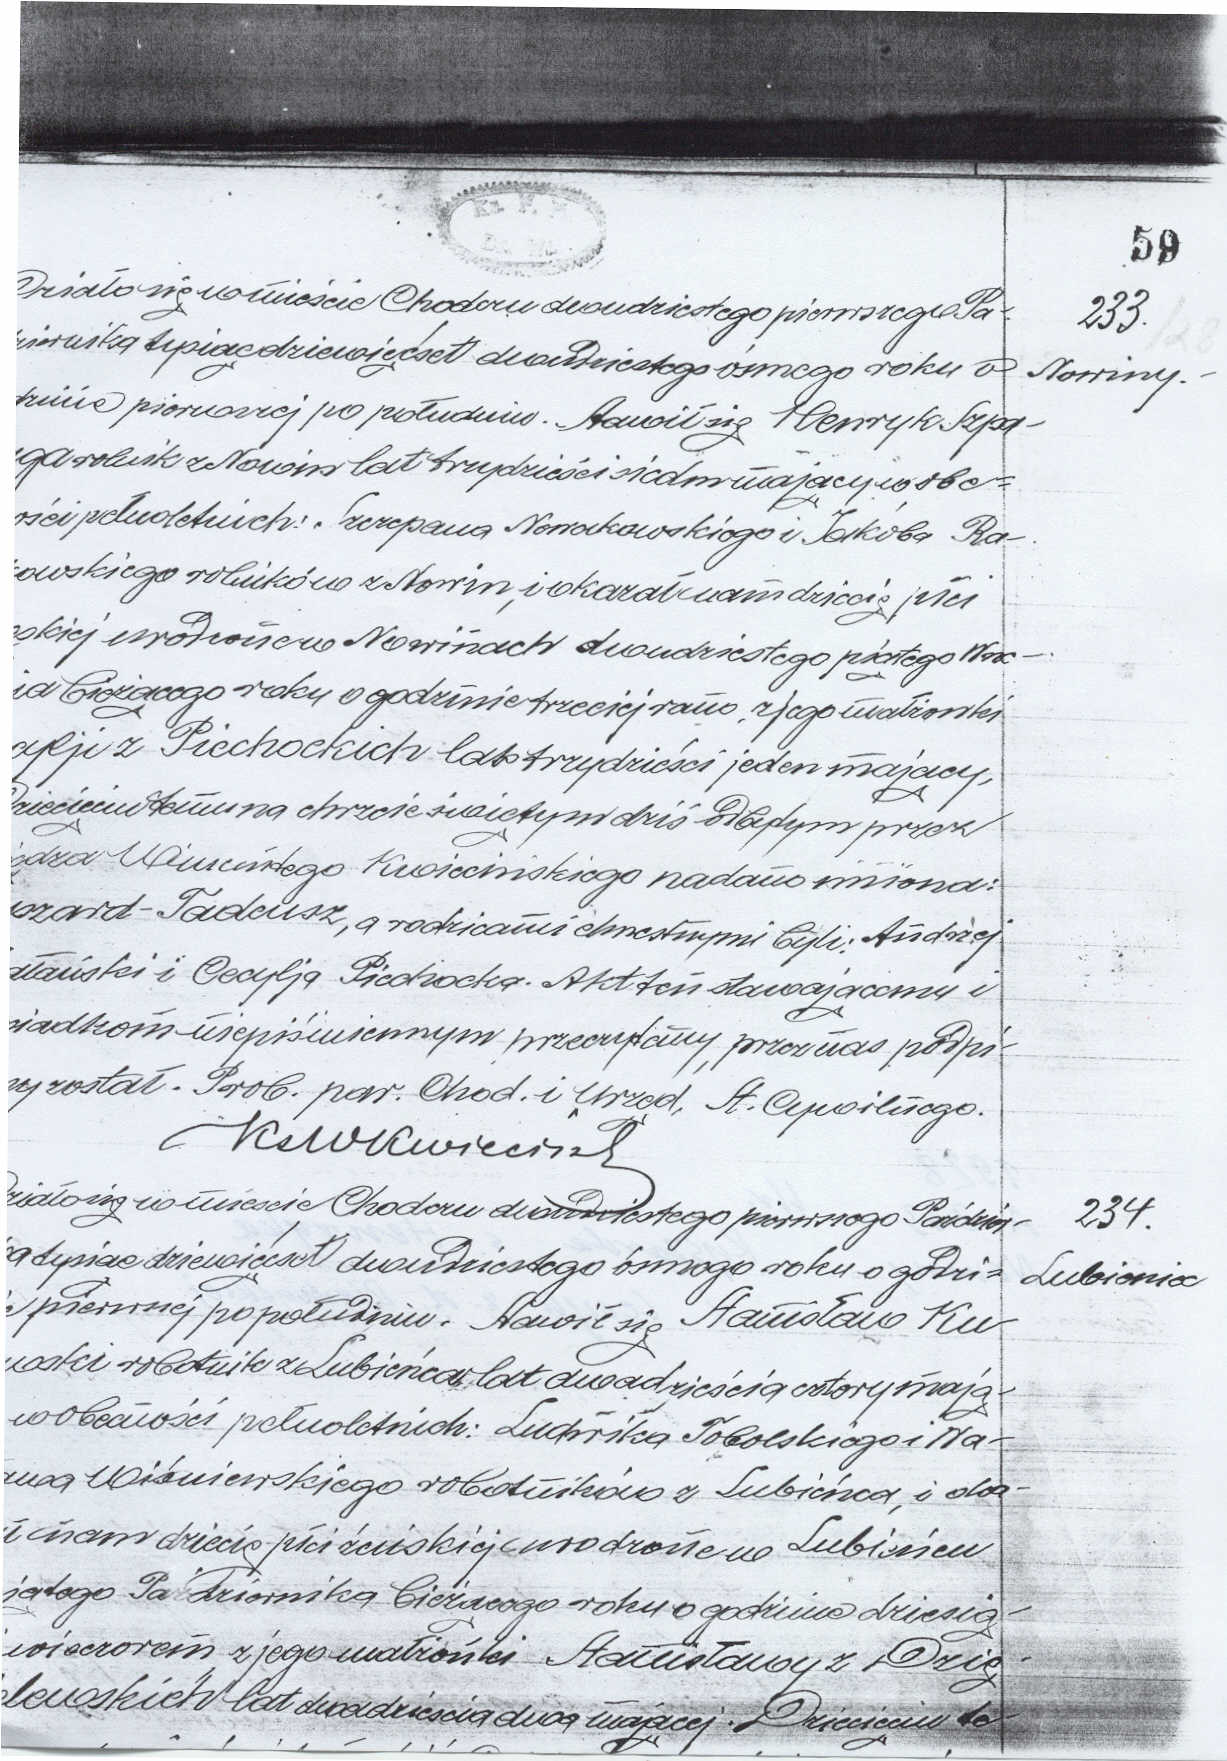 59
233.
Nowiny.
Działo się w mieście Chodczu dwudziestego pierwszego Pa-
ziernika tysiąc dziewięćset dwudziestego ósmego roku o
dzinie pierwszej po południu. Stawił się Henryk Szpa-
ga rolnik z Nowin lat trzydzieści siedm mający w obe=
ości pełnoletnich: Szczepana Nowakowskiego i Jakóba Ra-
kowskiego rolników z Nowin, i okazał nam dziecię płci
ęskiej urodzone w Nowinach dwudziestego piątego Wrz-
ia bieżącego roku o godzinie trzeciej rano, z jego małżonki
afji z Piechockich lat trzydzieści jeden mający,
Dziecięciu temu na chrzcie świętym dziś odbytym przez
iędza Wincentego Kwiecińskiego nadano imiona:
szard-Tadeusz, a rodzicami chrzestnymi byli: Andrzej
atański i Cecylja Piechocka. Akt ten stawającemu i
iadkom niepiśmiennym przeczytany, przez nas podpi-
ny został. Prob. par. Chod. i Urzęd. St. Cywilnego.
Ks W Kwieciński
234.
Lubieniec
Działo się w mieście Chodczu dwudziestego pierwszego Paździer-
ka tysiąc dziewięćset dwudziestego ósmego roku o godzi=
e pierwszej po południu. Stawił się Stanisław Ku-
wski robotnik z Lubieńca lat dwadzieścia cztery mają-
w obecności pełnoletnich: Ludwika Tobolskiego i Wa-
awa Wiśniewskiego robotników z Lubieńca, i oka-
ł nam dziecię płci żeńskiej urodzone w Lubieńcu
iątego Października bieżącego roku o godzinie dziesią-
wieczorem z jego małżonki Stanisławy z Dzię-
elewskich lat dwadzieścia dwa mającej. Dziecięciu te-